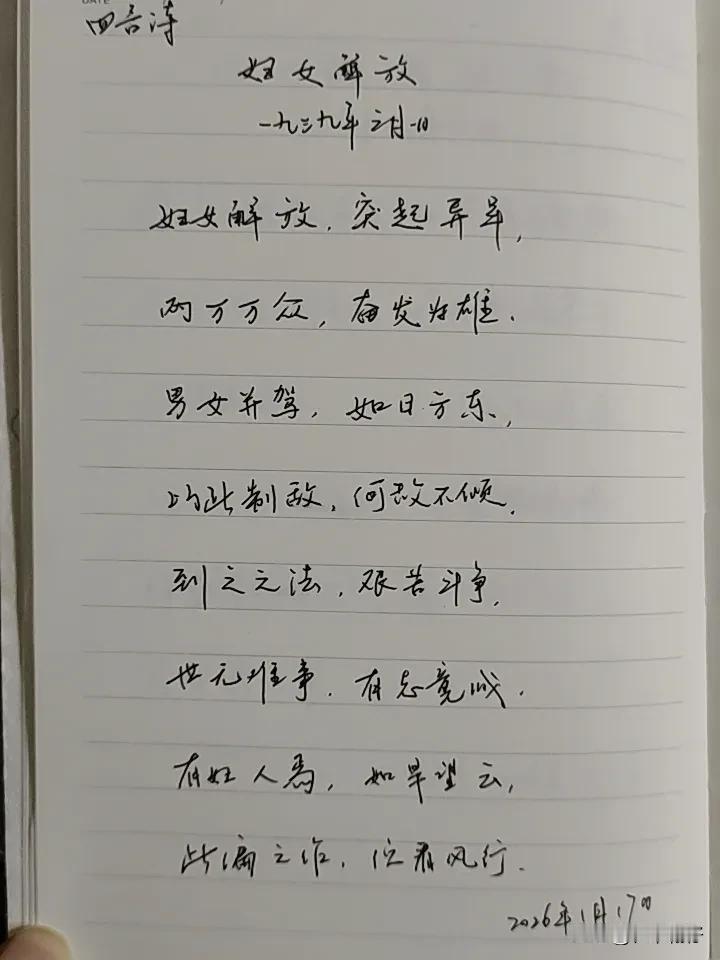 DATE
四言诗
妇女解放
一九三九年六月一日
妇女解放，突起异军，
两万万众，奋发为雄.
男女并驾，如日方东，
以此制敌，何敌不倾.
到之之法，艰苦斗争，
世无难事，有志竟成.
有妇人焉，如旱望云，
此编之作，伫看风行.
2026年1月17日